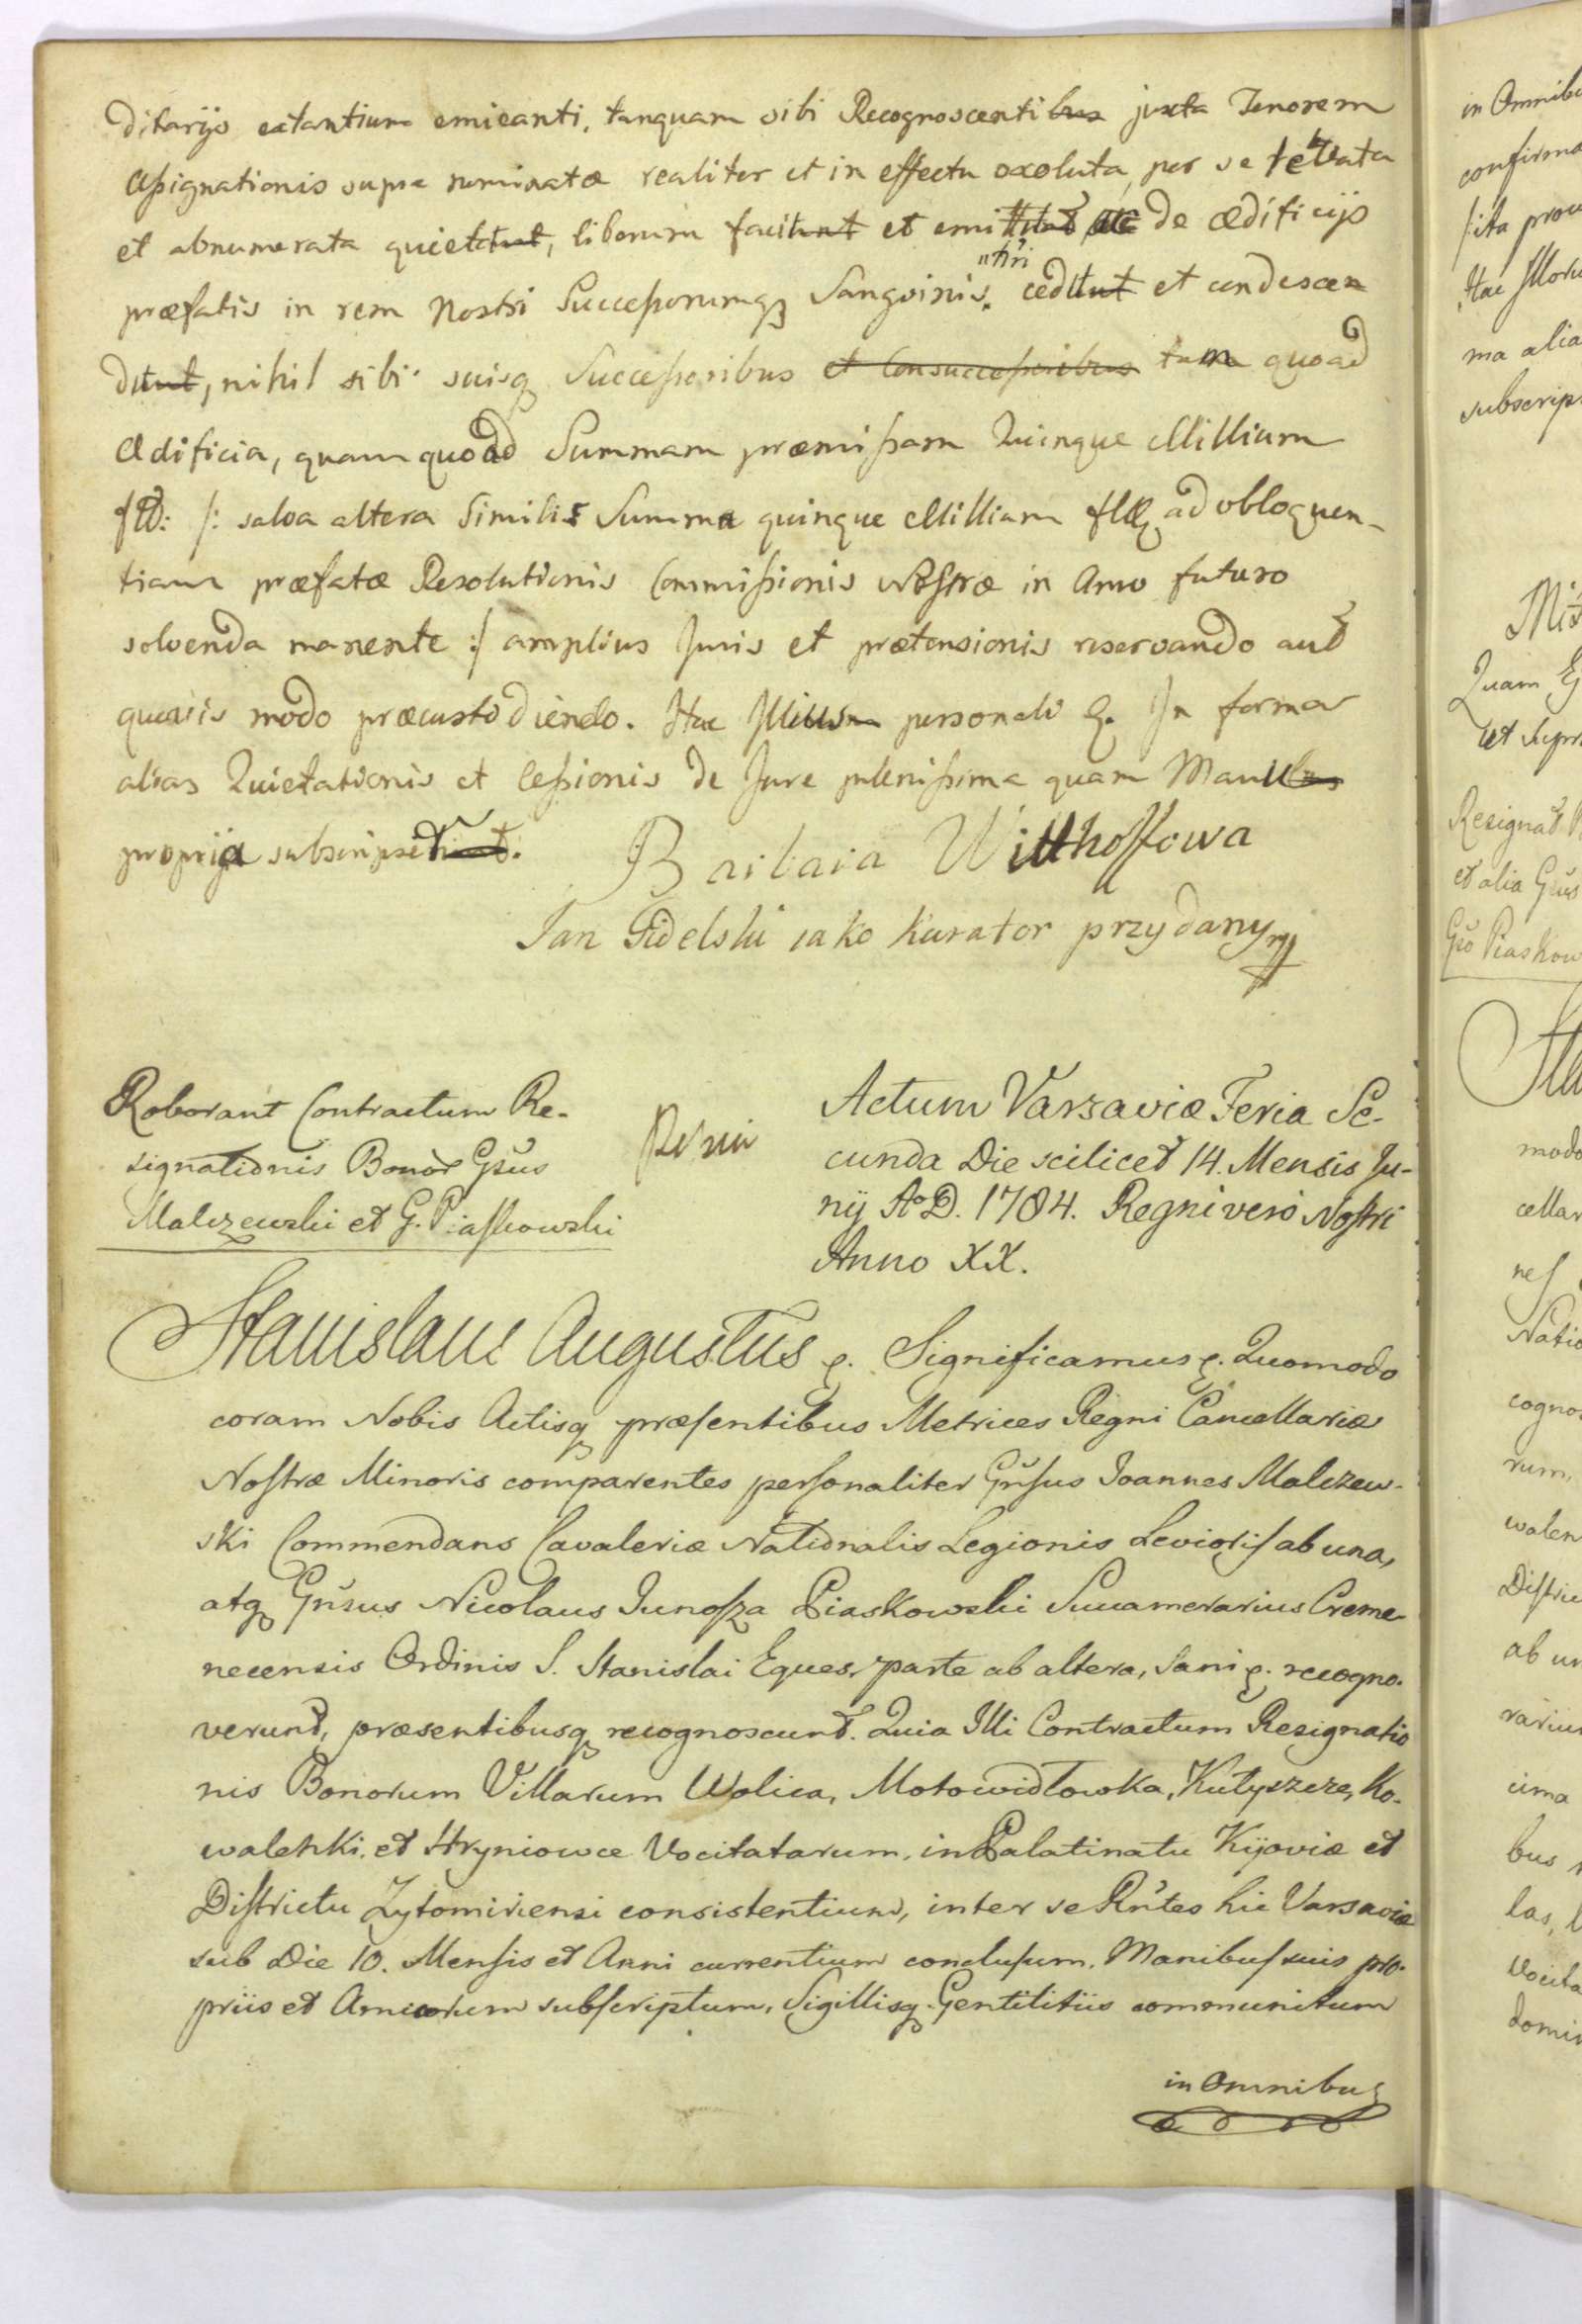 ditarijs extantium emicanti, tanquam sibi Recognoscenti juxta Tenorem
Assignationis supra nominatæ realiter et in effectu exoluta, per se levata
et abnumerata quietat, liberum facit et emittit de ædificijs
præfatis in rem Nostri Successorumq Sangvinis. nri cedit et condescen
dit, nihil sibi suisq Successoribus et Consuccessoribus tam quoad
Ædificia, quam quoad Summam præmissam Quinque Millium
fłł: /: salva altera Simili Summa quinque Millium ad obloquen-
tiam præfatæ Resolutionis Commissionis Nostræ in Anno futuro
solvenda manente :/ amplius Juris et prætensionis reservando aut
quovis modo præcustodiendo. Hac personali &. In forma
alias Quietationis et Cessionis de Jure plenissima quam Manu
propria subscripsit.
Barbara Witthoffowa
Jan Fidelski iako Kurator przydany mp
Roborant Contractum Re-
signationis Bonor Gsus
Malczewski et G. Piaskowski
Actum Varsaviæ Feria Se-
cunda Die scilicet 14. Mensis Ju-
nij Ao D. 1784. Regni vero Nostri
Anno XX.
Stanislaus Augustus &. Significamus &. Quomodo
coram Nobis Actisq præsentibus Metrices Regni Cancellariæ
Nostræ Minoris comparentes personaliter Gnsus Joannes Malczew-
ski Commendans Cavaleriæ Nationalis Legionis Levioris ab una,
atq Gnsus Nicolaus Junosza Piaskowski Succamerarius Creme-
necensis Ordinis S. Stanislai Eques, parte ab altera, Sani &. recogno-
verunt, præsentibusq recognoscunt. Quia Illi Contractum Resignatio
nis Bonorum Villarum Wolica, Motowidłowka, Kutyszcze, Ko-
walenki, et Hryniowce Vocitatarum, in Palatinatu Kijoviæ et
Districtu Zytomiriensi consistentium, inter se Rntes hic Varsaviæ
sub Die 10. Mensis et Anni currentium conclusum, Manibus suis pro-
priis et Amicorum subscriptum, Sigillisq Gentilitiis communitum
in Omnibus
in Omnibu
confirma
ma alia
subscrip
Quam
ut supr
Resignat
et alia Gsus
Gso Piaskow
modo
cellar
nes
Natio
cogno
rum,
walen
Distri
ab un
rariu
cima
bus
las,
Vocita
domi